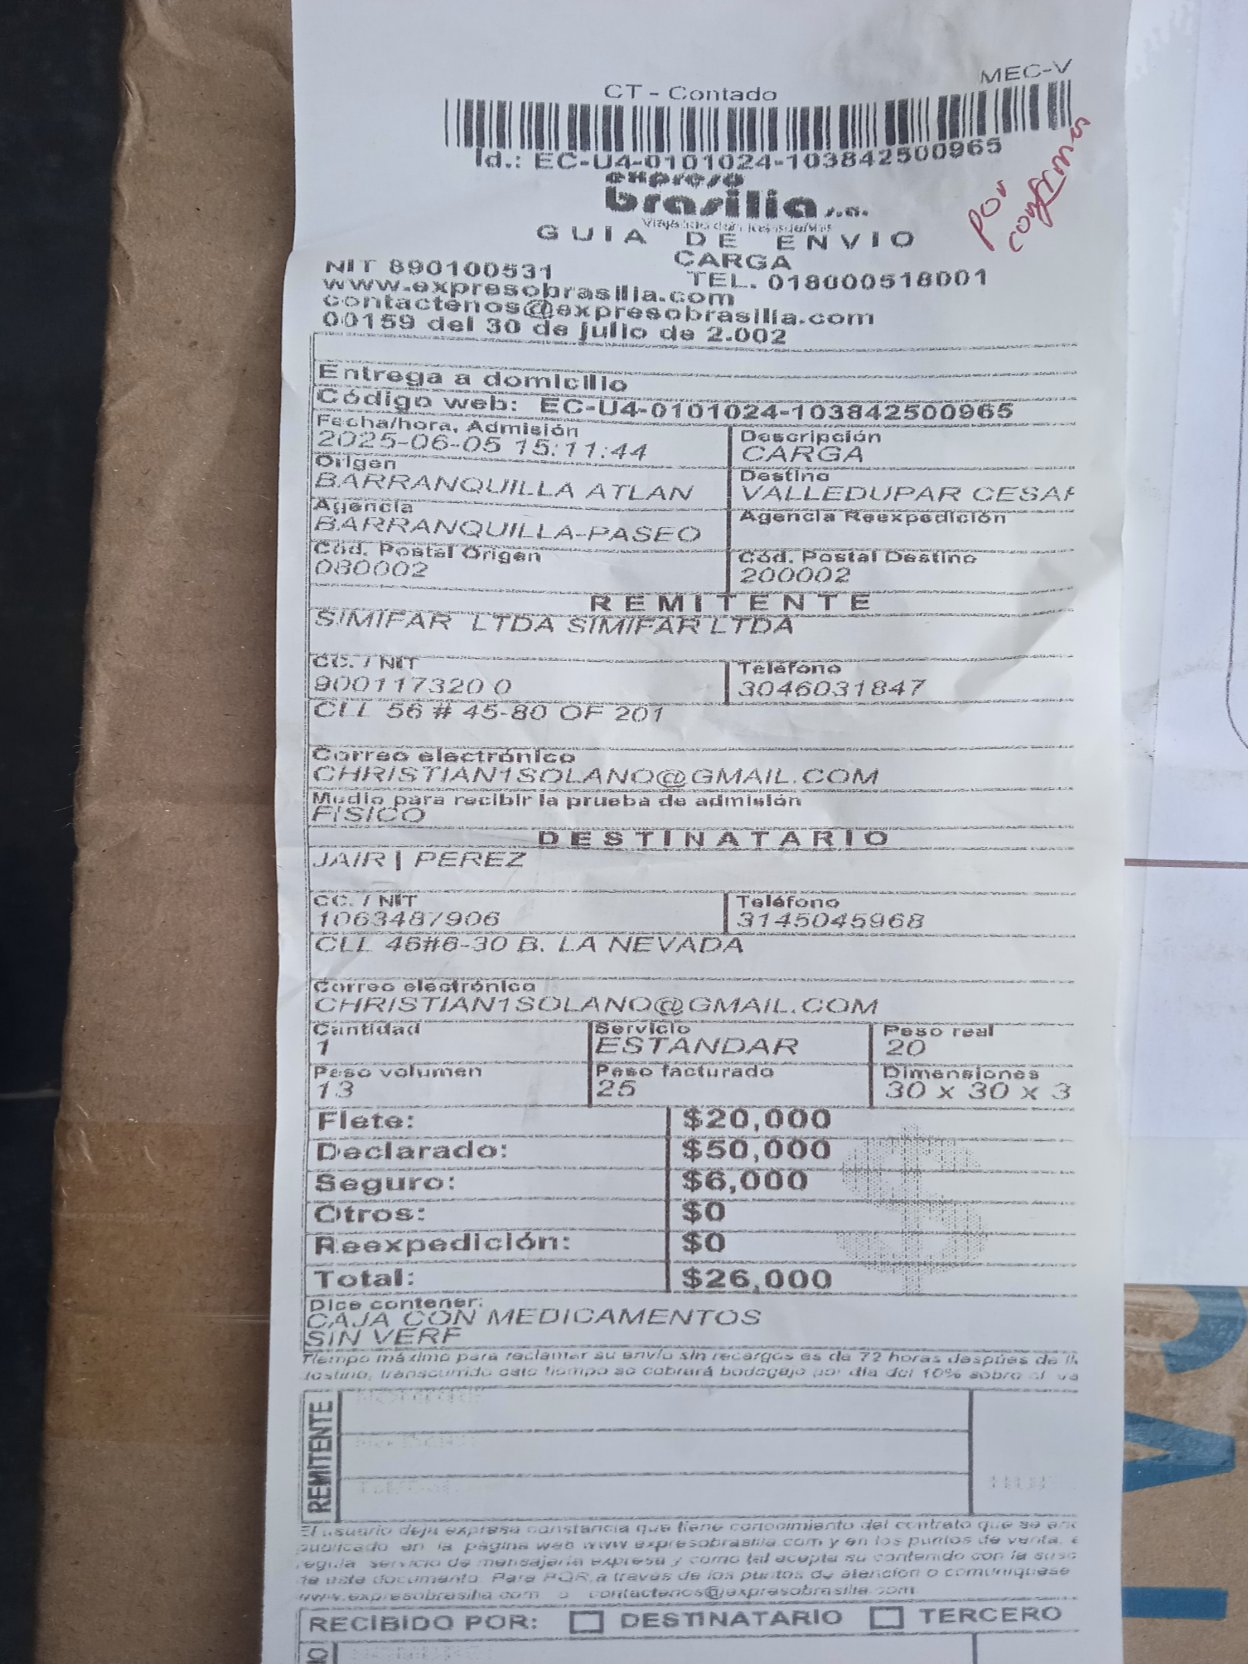 MEC-V
CT - Contado
Id.: EC-U4-0101024-103842500965
expreso
brasilia s.a.
GUIA DE ENVIO
CARGA
por
confirmar
NIT 890100531 TEL. 018000518001
www.expresobrasilia.com
contactenos@expresobrasilia.com
00159 del 30 de julio de 2.002
Entrega a domicilio
Código web: EC-U4-0101024-103842500965
Fecha/hora. Admisión Descripción
2025-06-05 15:11:44 CARGA
Origen Destino
BARRANQUILLA ATLAN VALLEDUPAR CESAR
Agencia Agencia Reexpedición
BARRANQUILLA-PASEO
Cód. Postal Origen Cód. Postal Destino
080002 200002
REMITENTE
SIMIFAR LTDA SIMIFAR LTDA
CC. / NIT Teléfono
900117320 0 3046031847
CLL 56 # 45-80 OF 201
Correo electrónico
CHRISTIAN1SOLANO@GMAIL.COM
Medio para recibir la prueba de admisión
FISICO
DESTINATARIO
JAIR | PEREZ
CC. / NIT Teléfono
1063487906 3145045968
CLL 46#6-30 B. LA NEVADA
Correo electrónico
CHRISTIAN1SOLANO@GMAIL.COM
Cantidad Servicio Peso real
1 ESTANDAR 20
Peso volumen Peso facturado Dimensiones
13 25 30 x 30 x 3
Flete: $20,000
Declarado: $50,000
Seguro: $6,000
Otros: $0
Reexpedición: $0
Total: $26,000
$
Dice contener:
CAJA CON MEDICAMENTOS
SIN VERF
Tiempo máximo para reclamar su envío sin recargos es de 72 horas después de
destino, transcurrido este tiempo se cobrará bodegaje por día del 10% sobre el va
REMITENTE
El usuario deja expresa constancia que tiene conocimiento del contrato que se
publicado en la página web www.expresobrasilia.com y en los puntos de venta,
regula servicio de mensajería expresa y como tal acepta su contenido con la susc
de este documento. Para PQR a través de los puntos de atención o comuníquese
www.expresobrasilia.com o contactenos@expresobrasilia.com
RECIBIDO POR: DESTINATARIO TERCERO